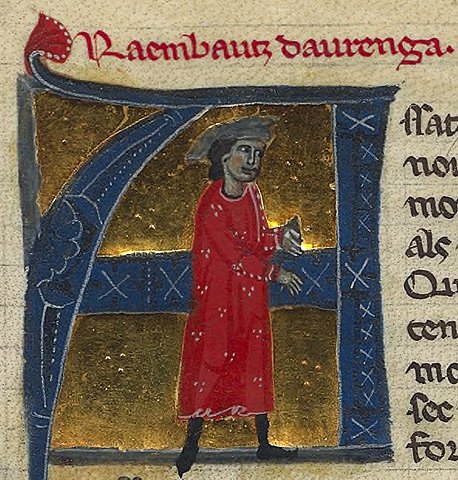 Raembautz daurenga.
ssat
nou
mo
als
Qu
cen
mo
sec
for